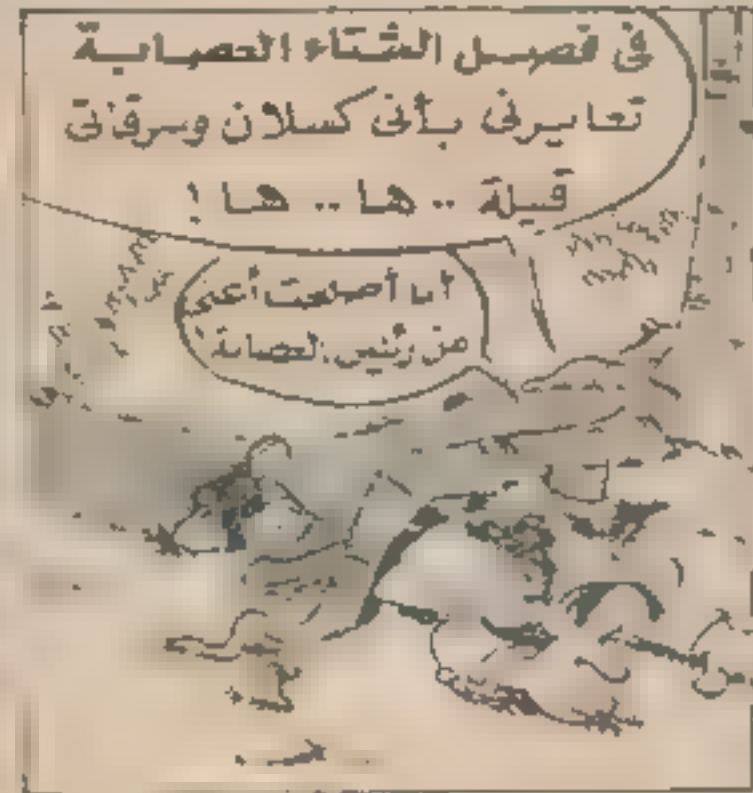 فى فصل الشتاء العصابة
تعايرنى بأنى كسلان وسرقاتى
قليلة .. ها .. ها !
أنا أصبحت أغنى
من رئيس العصابة !